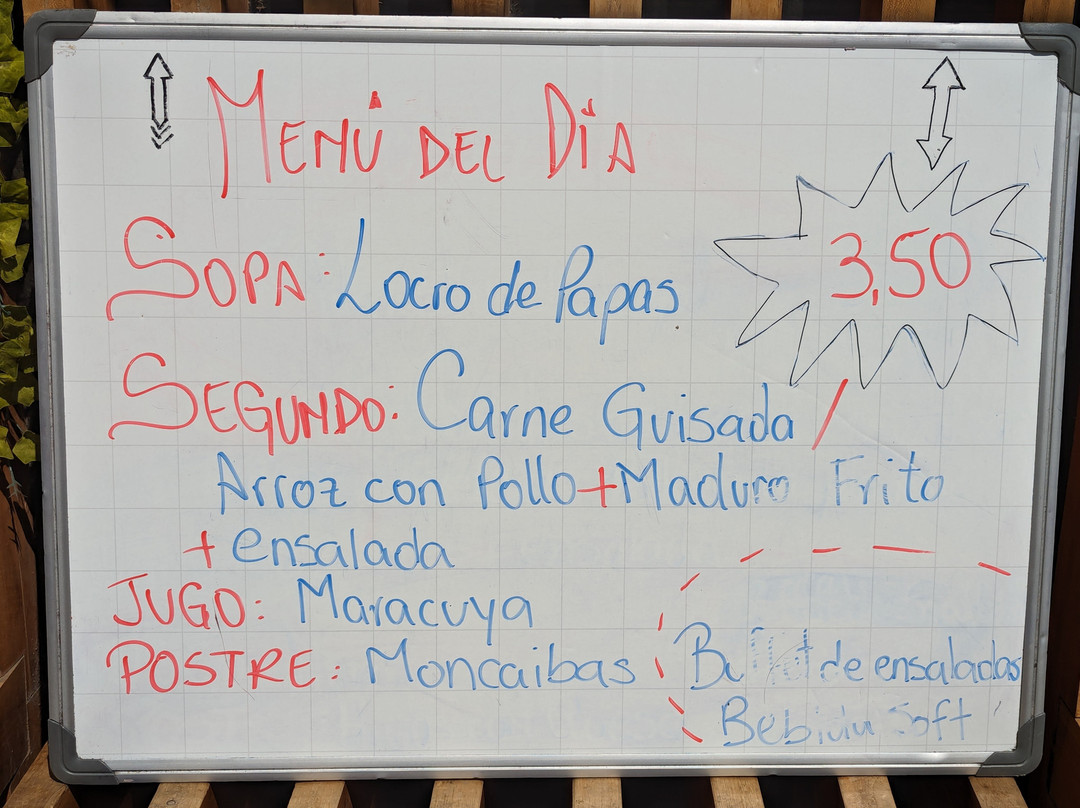 MENÚ DEL DÍA
SOPA: Locro de Papas
3,50
SEGUNDO: Carne Guisada /
Arroz con Pollo + Maduro Frito
+ ensalada
JUGO: Maracuya
POSTRE: Moncaibas
Buffet de ensaladas
Bebida Soft